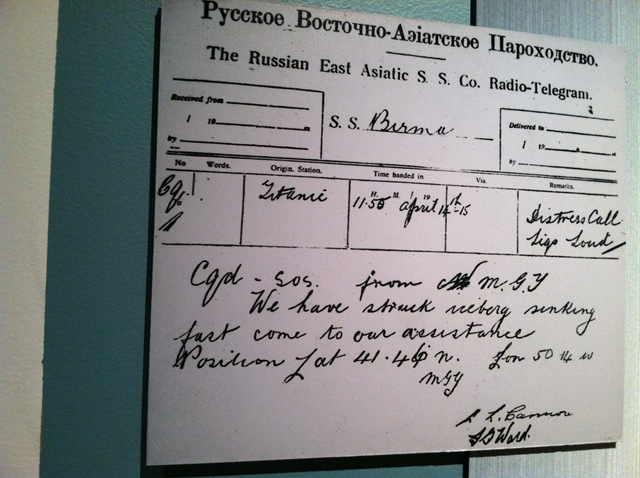 Русское Восточно-Азіатское Пароходство.
The Russian East Asiatic S. S. Co. Radio-Telegram.
Received from
1 19 m
by
S. S. Birma
Delivered to
1 19 m
by
No Words. Origin. Station. Time handed in Via. Remarks.
H. M. 19
Cqd 1 Titanic 11.50 April 14th-15 Distress Call
Sigs Loud
Cqd - SOS. from M.G.Y
We have struck iceberg sinking
fast come to our assistance
Position Lat 41.46 n. Lon 50 14 w
MGY
L. Cannon
Ward.